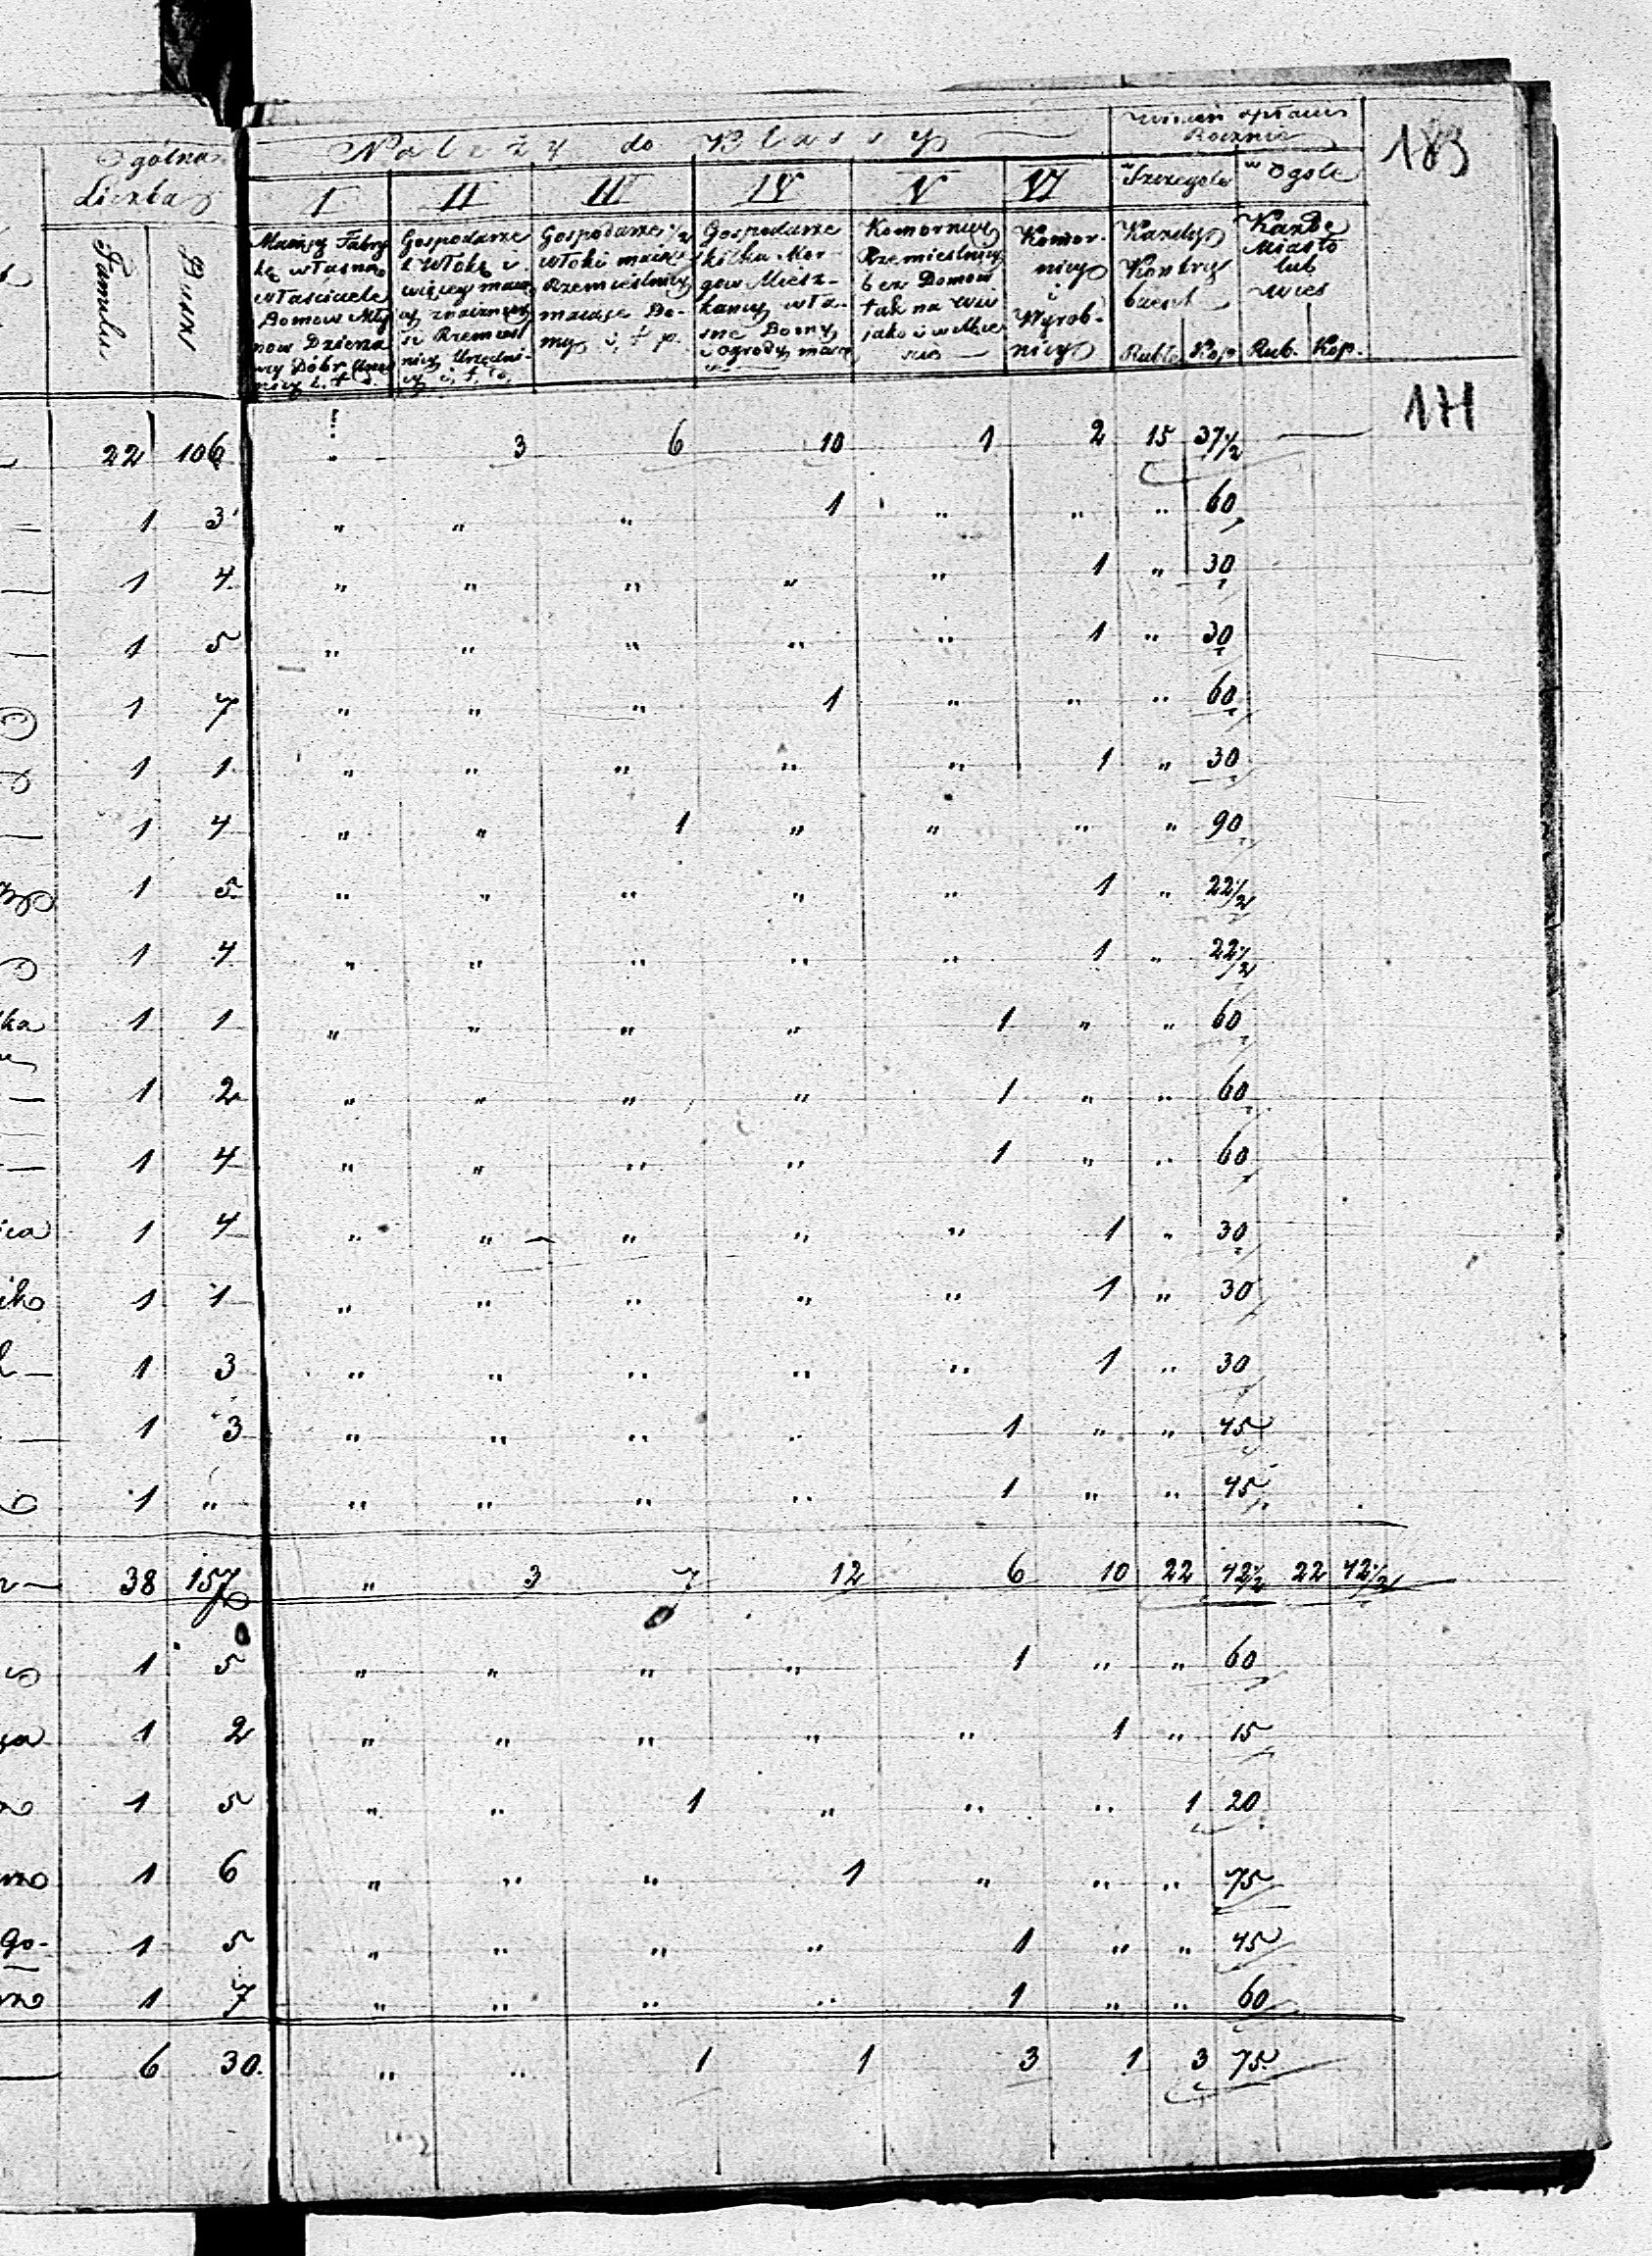 183
171
Ogólna
Liczba
Należy do Klassy
winien opłacać
Rocznie
w Szczególe
w Ogóle
I II III IV V VI
Familii
Dusz
Mający Fabry
kę własną
właściciele
Domów Mły
nów Dzierża
wcy Dóbr
Gospodarze
1 Włókę i
więcej mają
cy znaczniej
si Rzemieśl
nicy Urzędni
cy i t. d.
Gospodarze 1/2
włóki mający
Rzemieślnicy
mające Do-
my i t. p.
Gospodarze
kilka Mor-
gów Miesz-
kańcy wła-
sne Domy
i ogrody mają
Komornicy
Rzemieślnicy
bez Domów
tak na wsi
jako i w Mie
ście
Komor-
nicy
i
Wyrob-
nicy
Każdy
Kontry
buent
Każde
Miasto
lub
Wieś
Ruble Kop Rub. Kop.
22 106 " 3 6 10 1 2 15 37 1/2 —
— 1 3 " " " 1 " " " 60
— 1 4 " " " " " 1 " 30
— 1 5 " " " " " 1 " 30
1 7 " " " 1 " " " 60
1 1 " " " " " 1 " 30
— 1 4 " " 1 " " " " 90
1 5 " " " " " 1 " 22 1/2
1 4 " " " " " 1 " 22 1/2
ka 1 1 " " " " 1 " " 60
— 1 2 " " " " 1 " " 60
— 1 4 " " " " 1 " " 60
ica 1 4 " " " " " 1 " 30
ik 1 1 " " " " " 1 " 30
— 1 3 " " " " " 1 " 30
— 1 3 " " " " 1 " " 45
1 " " " " " 1 " " 45
— 38 157 " 3 7 12 6 10 22 42 1/2 22 42 1/2
1 5 " " " " 1 " " 60
1 2 " " " " " 1 " 15
1 5 " " 1 " " " 1 20
1 6 " " " 1 " " " 75
go- 1 5 " " " " 1 " " 45
1 7 " " " " 1 " " 60
— 6 30. " " 1 1 3 1 3 75